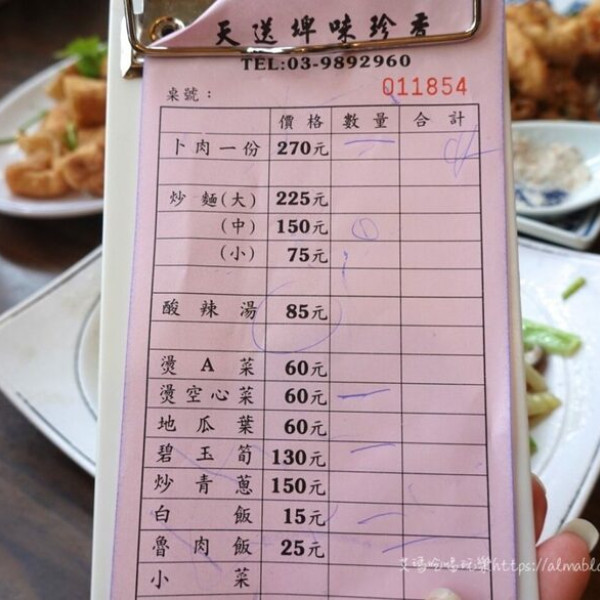 天送埤味珍香
TEL:03-9892960
桌號： 011854
價格 數量 合計
卜肉一份 270元 一
炒麵(大) 225元
(中) 150元 ①
(小) 75元
酸辣湯 85元
燙A菜 60元
燙空心菜 60元 一
地瓜葉 60元
碧玉筍 130元 一
炒青蔥 150元
白飯 15元 一
魯肉飯 25元
小菜
https://almablo